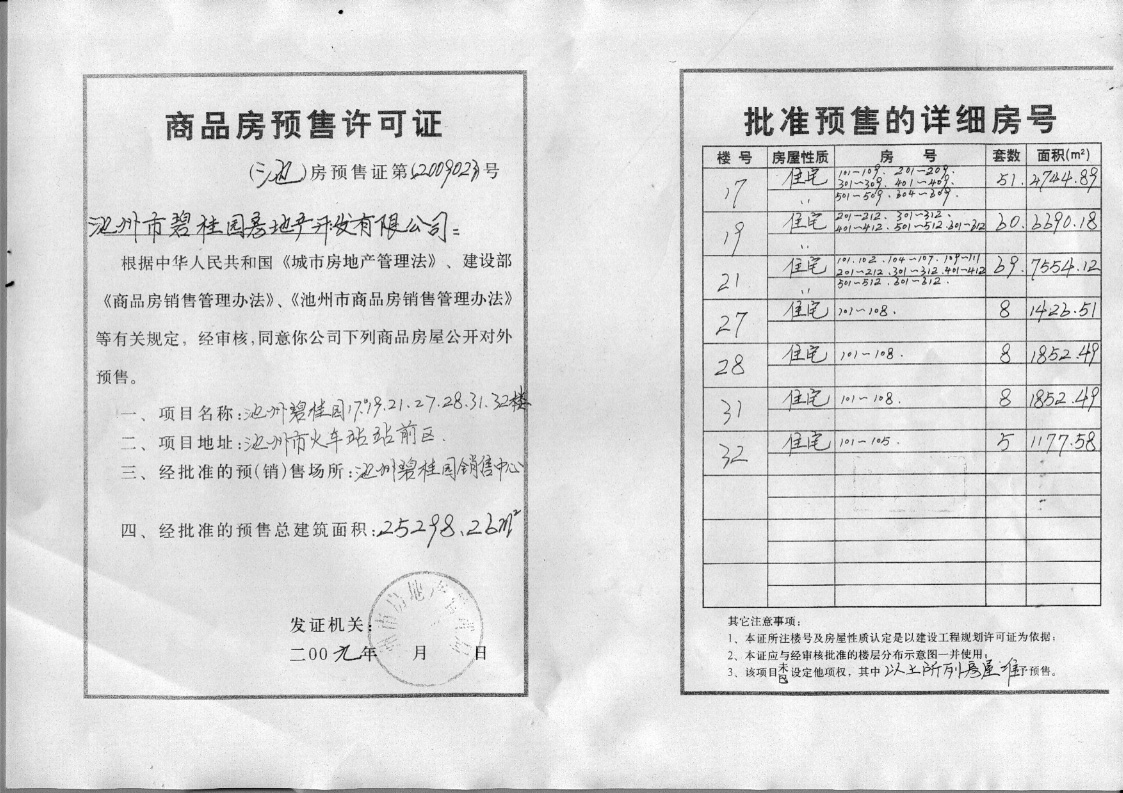 商品房预售许可证
(池)房预售证第(2009023)号
池州市碧桂园房地产开发有限公司:
根据中华人民共和国《城市房地产管理法》、建设部
《商品房销售管理办法》、《池州市商品房销售管理办法》
等有关规定,经审核,同意你公司下列商品房屋公开对外
预售。
一、项目名称:池州碧桂园17.19.21.27.28.31.32楼
二、项目地址:池州市火车站站前区.
三、经批准的预(销)售场所:池州碧桂园销售中心
四、经批准的预售总建筑面积:25298.26m²
发证机关:
二00九年 月 日
批准预售的详细房号
楼号 房屋性质 房号 套数 面积(m²)
17 住宅 101-109. 201-209. 51. 4744.89
301-309. 401-409.
〃 501-509. 604-609.
19 住宅 201-212. 301-312. 60. 6690.18
401-412. 501-512. 601-612
〃
21 住宅 101.102. 104-107. 109-111 69. 7554.12
201-212. 301-312. 401-412
〃 501-512. 601-612.
27 住宅 101-108. 8 1426.51
28 住宅 101-108. 8 1852.49
31 住宅 101-108. 8 1852.49
32 住宅 101-105. 5 1177.58
其它注意事项:
1、本证所注楼号及房屋性质认定是以建设工程规划许可证为依据;
2、本证应与经审核批准的楼层分布示意图一并使用;
3、该项目未已设定他项权,其中以上所列房屋准予预售。